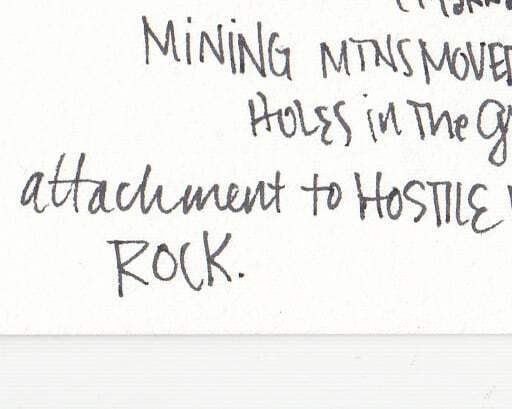 MiNiNG MTNS MOVED
HOLES in The
attachment to HOSTILE
ROCK.